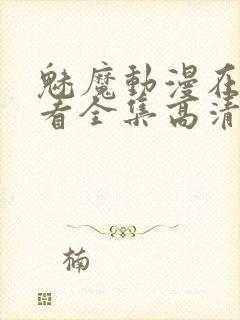 魅魔動漫在
看全集高清
楠